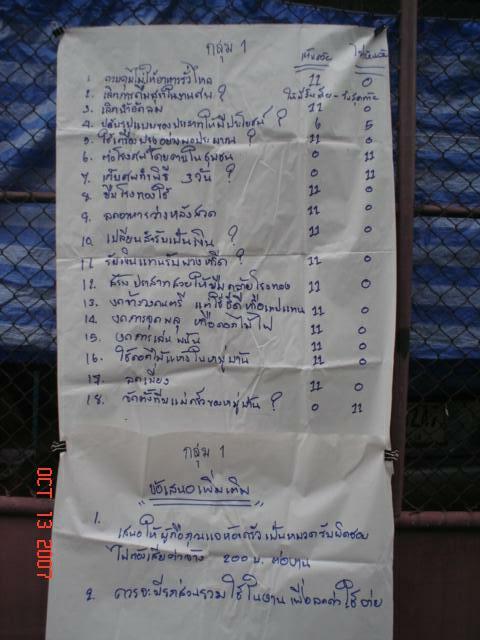 กลุ่ม 1
เห็นด้วย ไม่เห็นด้วย
1. ควบคุมไม่ให้อาหารรั่วไหล 11 0
2. เลิกการดื่มสุราในงานศพ ?
3. เลิกน้ำอัดลม 11 0
4. ปรับรูปแบบของประสาทให้มีประโยชน์ ? 6 5
5. ใช้เครื่อง ? 11 0
6. ต่อโลงศพโดยภายในชุมชน 0 11
7. เก็บศพทำพิธี 3 วัน ? 0 11
8. ยืมโรงทองใช้ 11 0
9. ลดอาหารว่างหลังสวด 11 0
10. เปลี่ยนสำรับเป็นเงิน ? 11 0
11. รับเงินแทนรับพวงหรีด ? 11 0
12. สร้างปราสาทสวยให้ยืมคล้ายโรงทอง 11 0
13. งดจ้างวงดนตรี แต่ใช้ซีดีหรือเทปแทน 11 0
14. งดการจุดพลุ หรือดอกไม้ไฟ 11 0
15. งดการเล่นพนัน 11 0
16. ใช้ดอกไม้แห้งในหมู่บ้าน 11 0
17. ลดเมี่ยง 11 0
18. จัดตั้งทีมแม่ครัวของหมู่บ้าน ? 0 11
กลุ่ม 1
"ข้อเสนอเพิ่มเติม"
1. เสนอให้ผู้ถือกุญแจห้องครัวเป็นหมวดรับผิดชอบ
ไม่ต้องเสียค่าจ้าง 200 บ. ต่องาน
2. ควรจะมีรถส่วนรวมใช้ในงานเพื่อลดค่าใช้จ่าย
OCT 13 2007